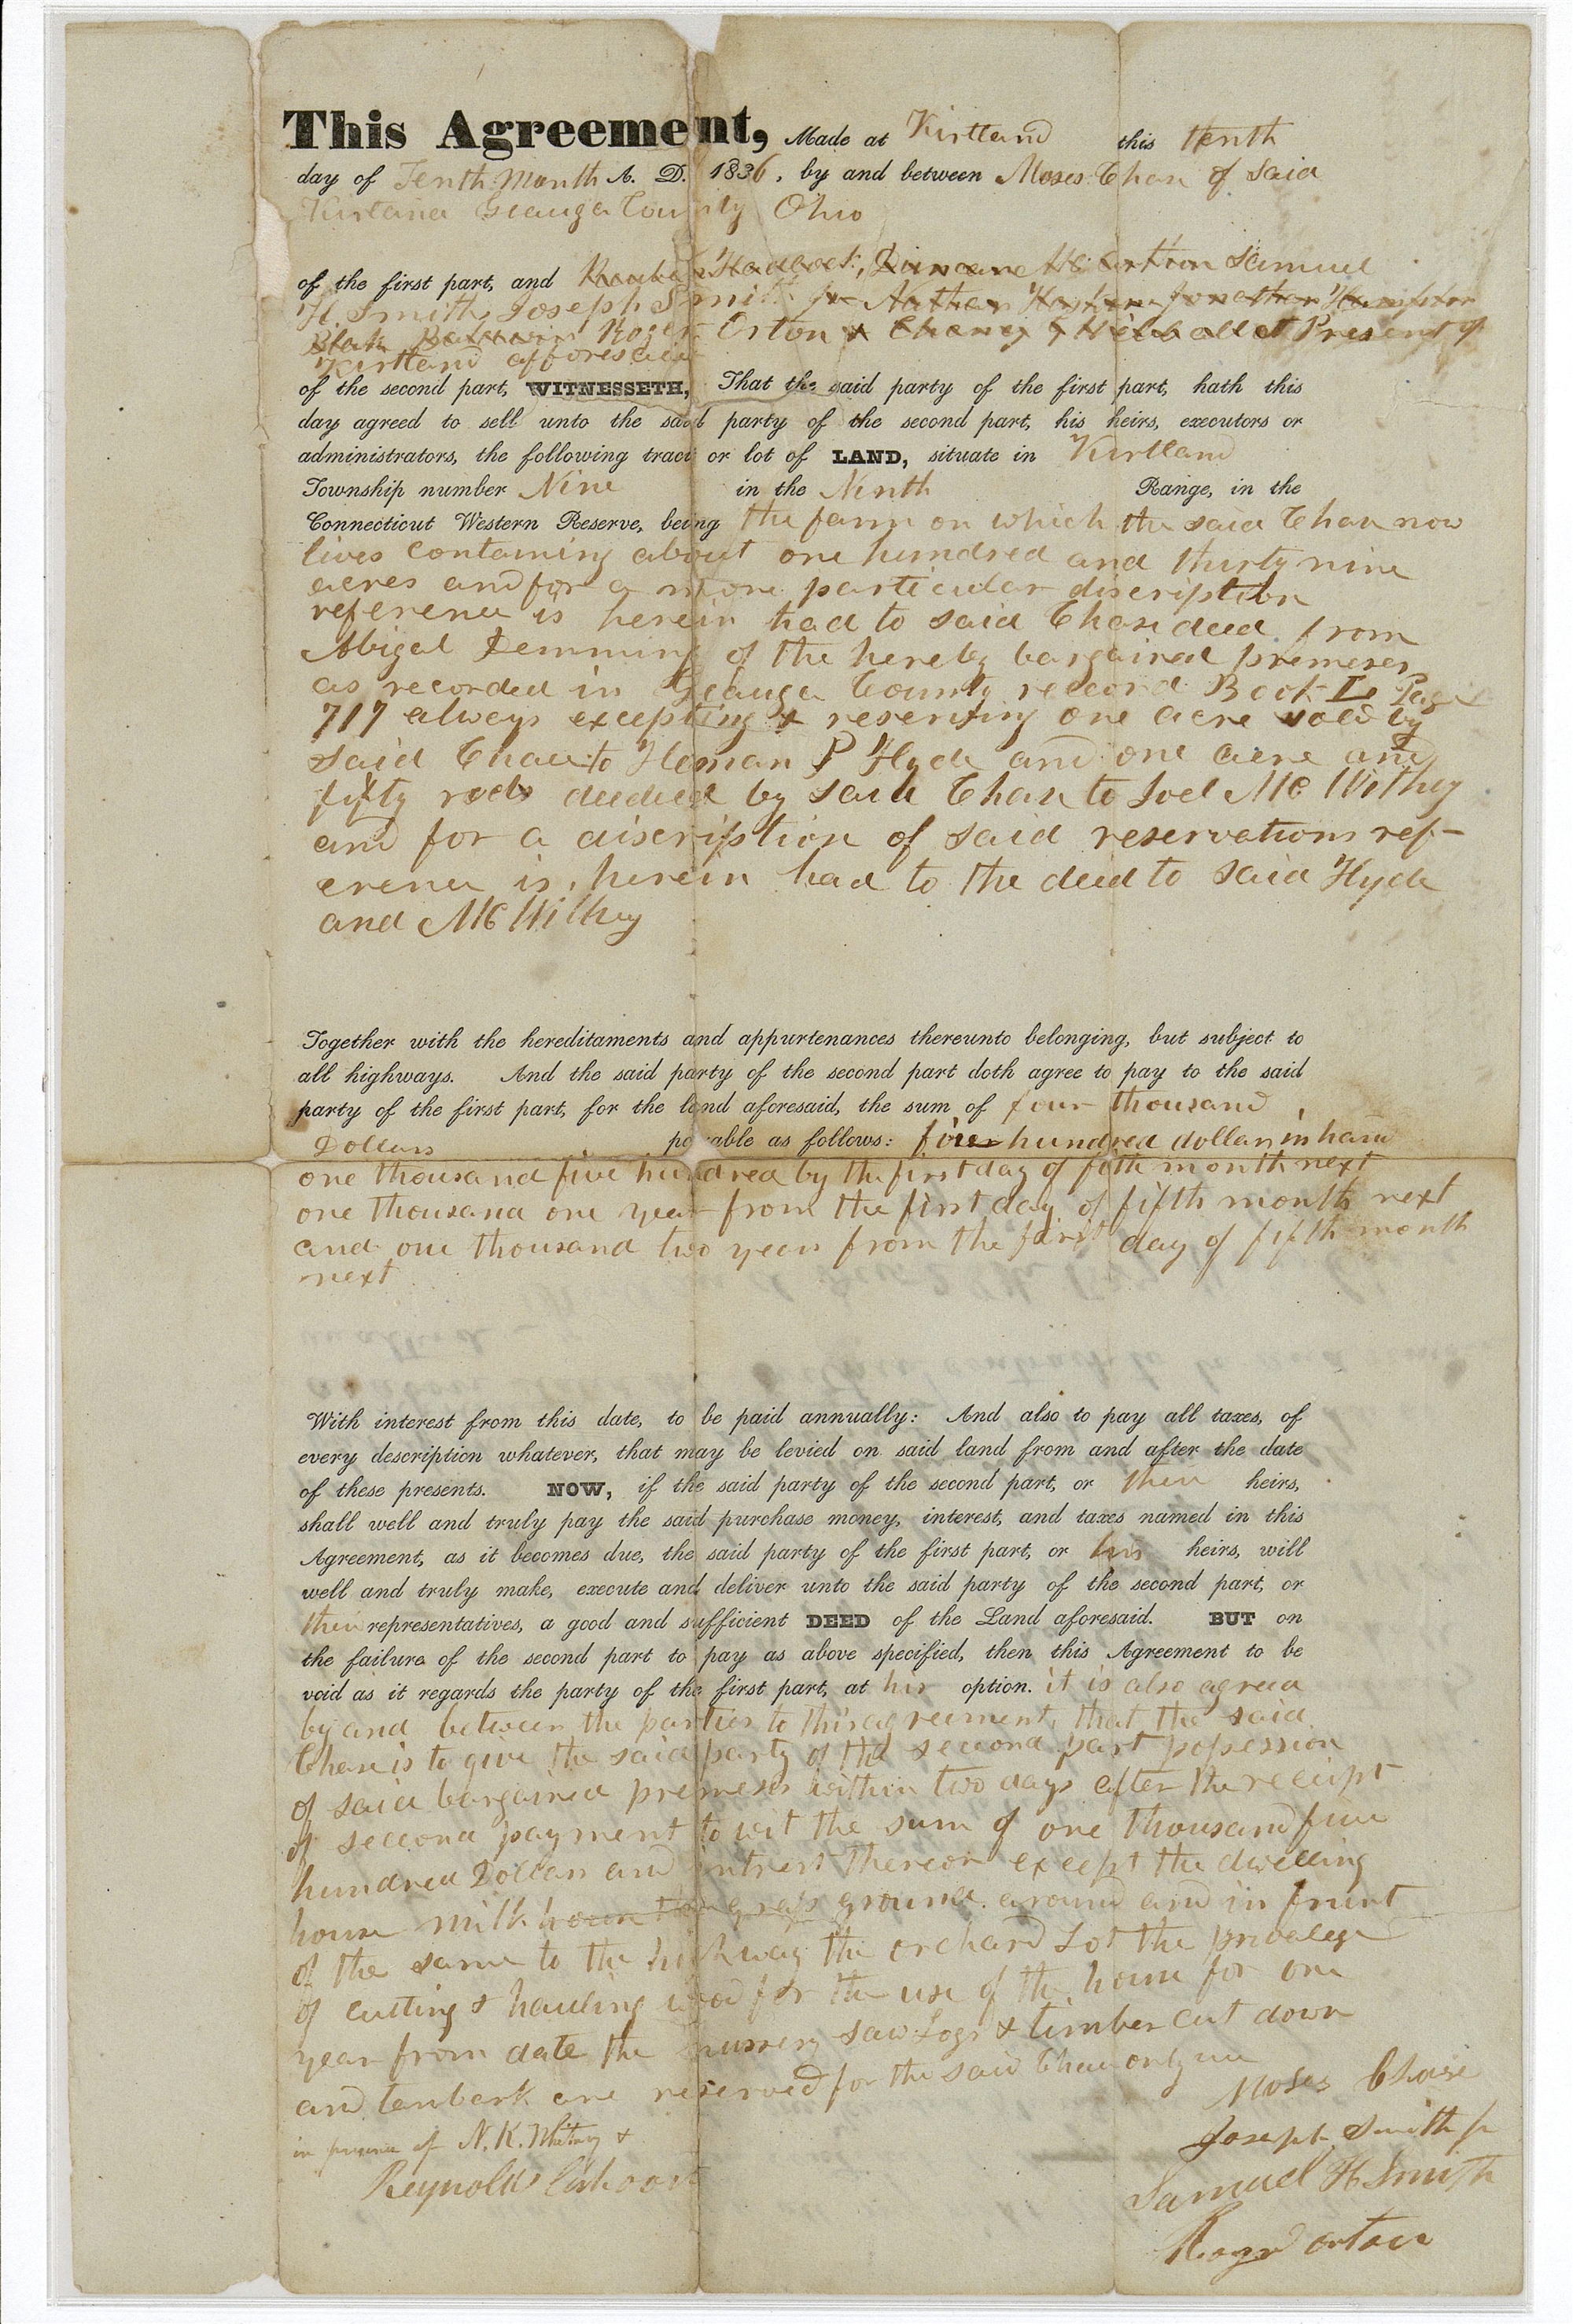 This Agreement, Made at Kirtland this tenth
day of Tenth Month A. D. 1836, by and between Moses Chase of said
Kirtland Geauga County Ohio
of the first part, and Hadlock, Samuel
H. Smith, Joseph Smith jr Nathan Jonathan
Blak Baldwin Roger Orton & all at Present of
Kirtland afforesaid
of the second part, WITNESSETH, That the said party of the first part, hath this
day agreed to sell unto the said party of the second part, his heirs, executors or
administrators, the following tract or lot of LAND, situate in Kirtland
Township number Nine in the Ninth Range, in the
Connecticut Western Reserve, being the farm on which the said Chase now
lives containing about one hundred and thirty nine
acres and for a more particular discription
reference is herein had to said Chase deed from
Abigal Demming of the hereby bargained premeses
as recorded in Geauga County record Book L Page
717 always excepting & reserving one acre sold by
said Chase to Heman P Hyde and one acre and
fifty rods deeded by said Chase to Joel Mc Withy
and for a discription of said reservations ref-
erence is herein had to the deed to said Hyde
and Mc Withy
Together with the hereditaments and appurtenances thereunto belonging, but subject to
all highways. And the said party of the second part doth agree to pay to the said
party of the first part, for the land aforesaid, the sum of four thousand
Dollars payable as follows: five hundred dollars in hand
one thousand five hundred by the first day of fifth month next
one thousand one year from the first day of fifth month next
and one thousand two years from the first day of fifth month
next
With interest from this date, to be paid annually: And also to pay all taxes, of
every description whatever, that may be levied on said land from and after the date
of these presents. NOW, if the said party of the second part, or their heirs,
shall well and truly pay the said purchase money, interest, and taxes named in this
Agreement, as it becomes due, the said party of the first part, or his heirs, will
well and truly make, execute and deliver unto the said party of the second part, or
their representatives, a good and sufficient DEED of the Land aforesaid. BUT on
the failure of the second part to pay as above specified, then this Agreement to be
void as it regards the party of the first part, at his option. it is also agreed
by and between the parties to this agreement, that the said
Chase is to give the said party of the second part possession
of said bargained premeses within two days after the receipt
of second payment to wit the sum of one thousand five
hundred Dollars and intrest thereon except the dwelling
house milk house the grass ground around and in frunt
of the same to the highway the orchard Lot the privalege
of cutting & hauling wood for the use of the house for one
year from date the nursery saw Logs & timber cut down
and tanbark are reserved for the said Chase only
in presence of N. K. Whitney &
Reynolds Cahoon
Moses Chase
Joseph Smith jr
Samuel H Smith
Roger Orton